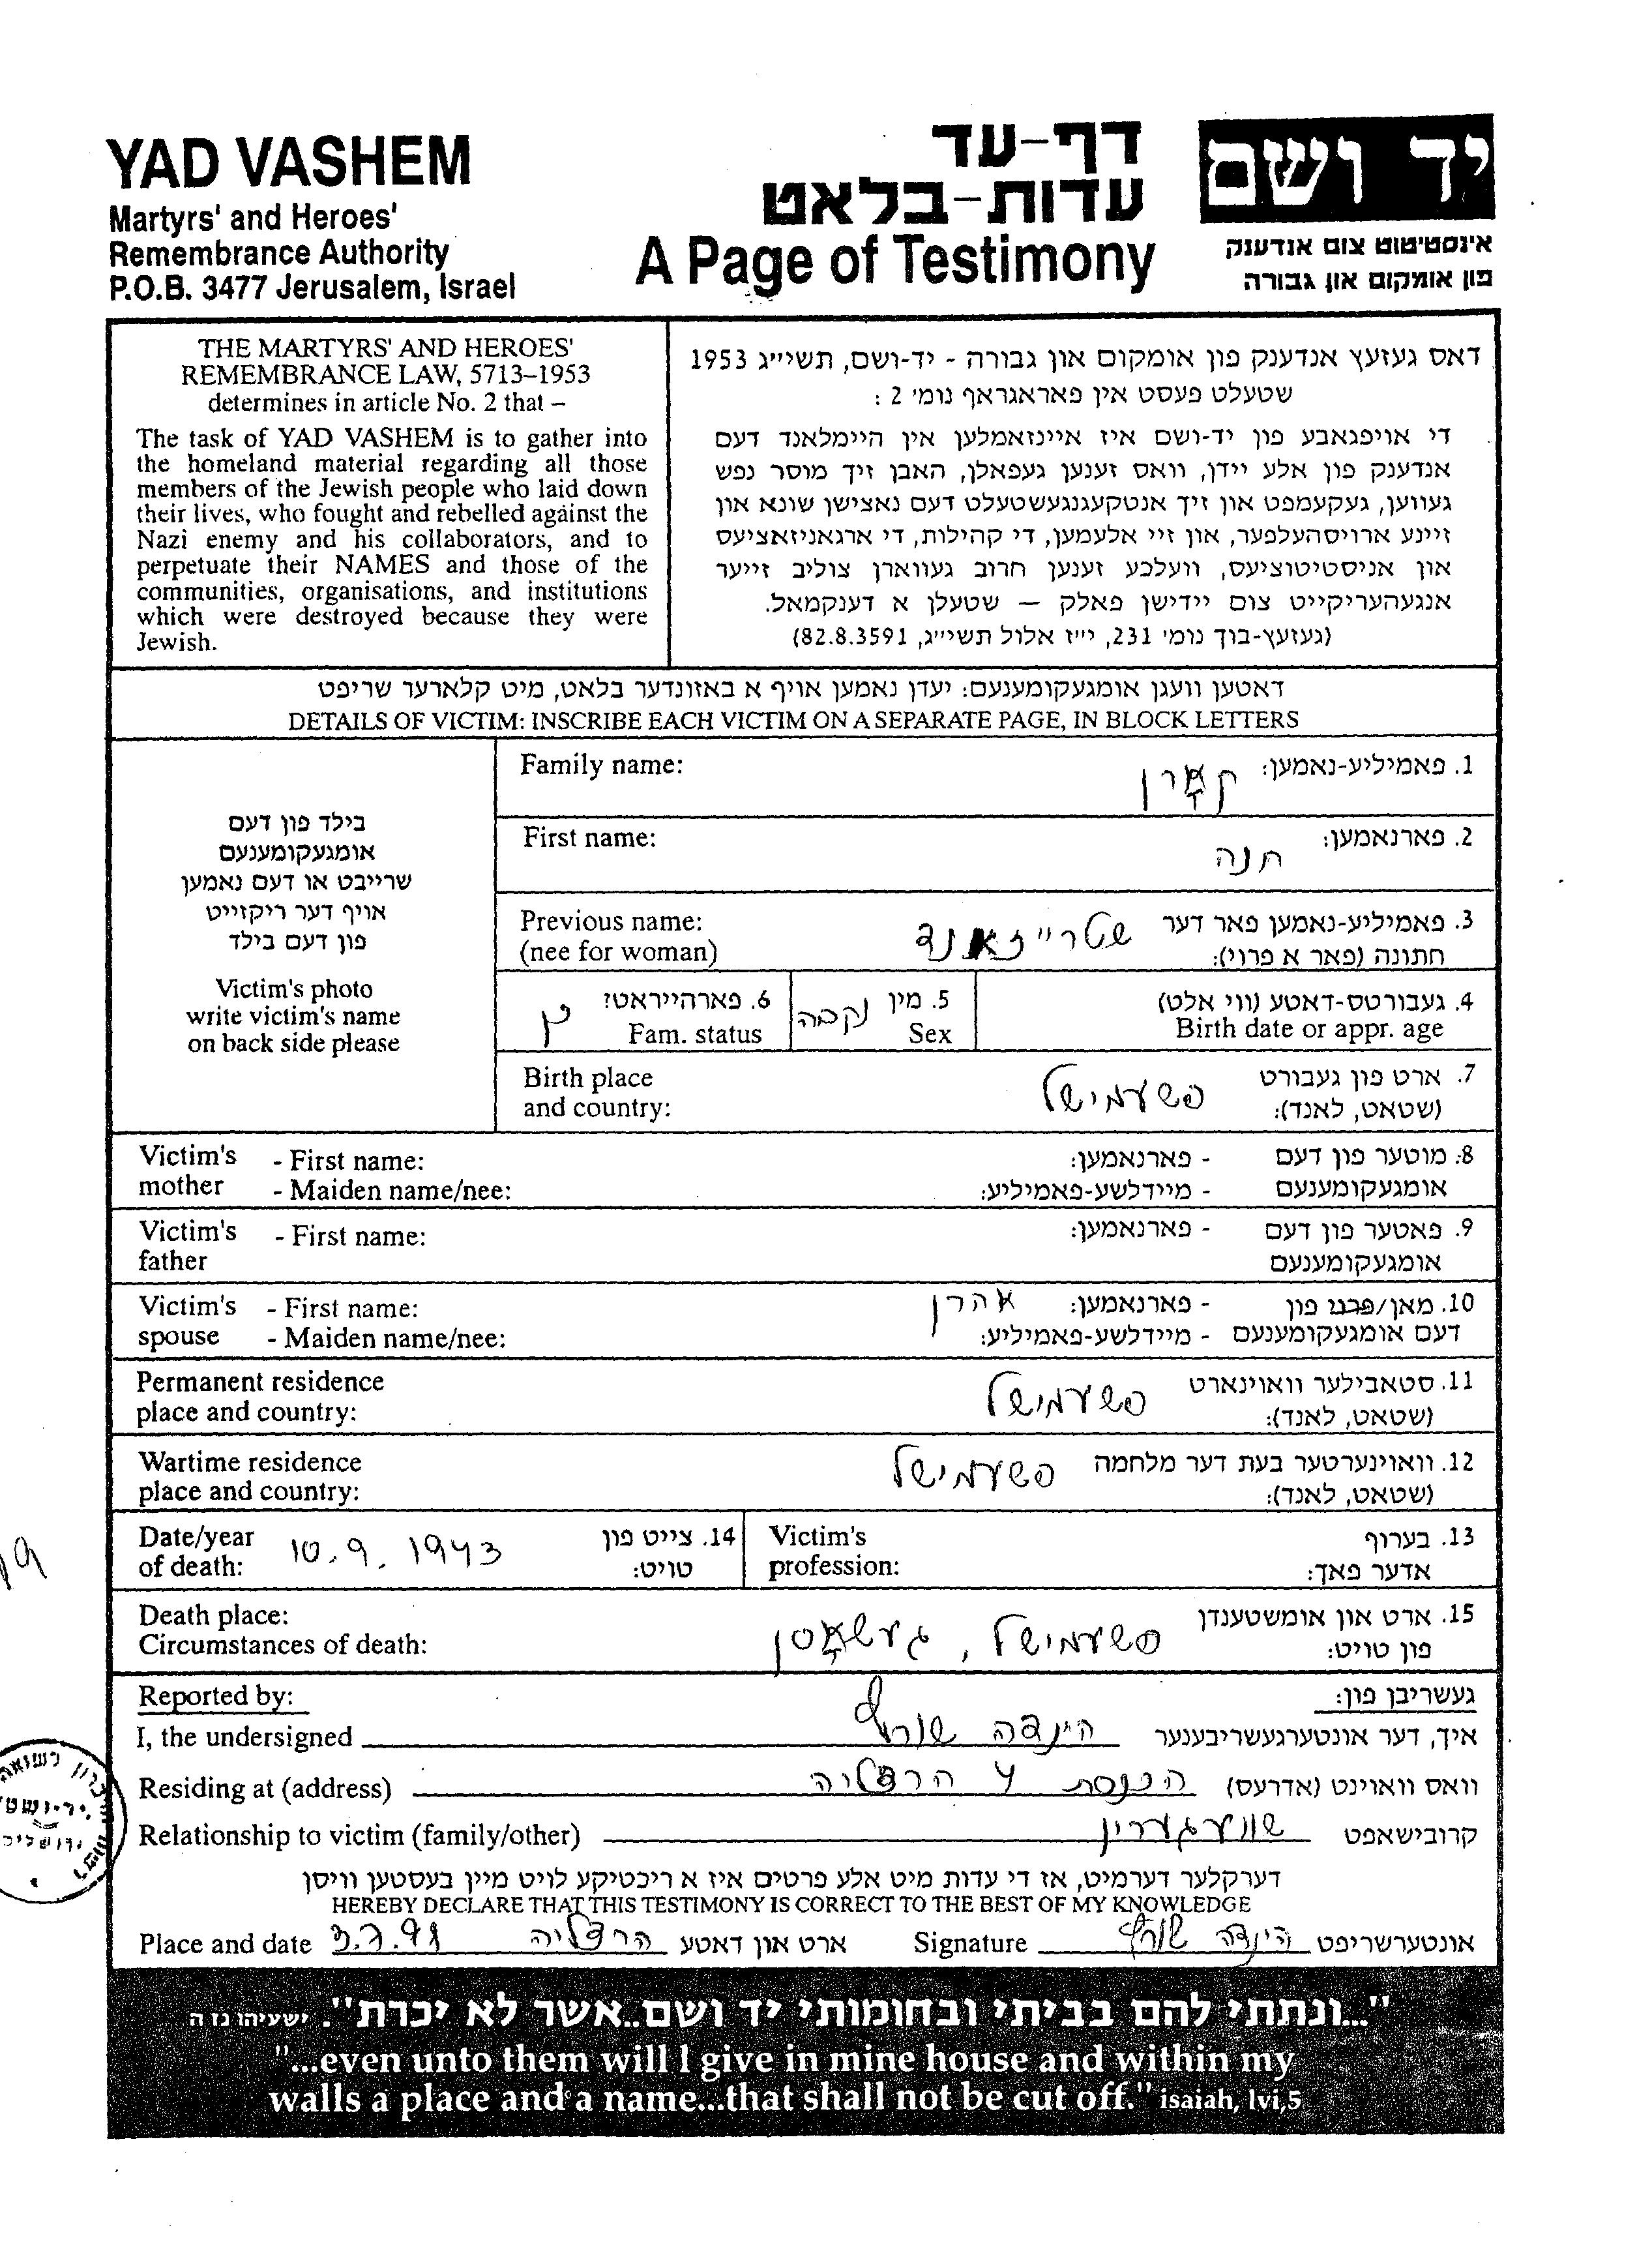 YAD VASHEM
Martyrs' and Heroes'
Remembrance Authority
P.O.B. 3477 Jerusalem, Israel
דף-עד
עדות-בלאט
A Page of Testimony
יד ושם
אינסטיטוט צום אנדענק
פון אומקום און גבורה
THE MARTYRS' AND HEROES'
REMEMBRANCE LAW, 5713–1953
determines in article No. 2 that –
The task of YAD VASHEM is to gather into
the homeland material regarding all those
members of the Jewish people who laid down
their lives, who fought and rebelled against the
Nazi enemy and his collaborators, and to
perpetuate their NAMES and those of the
communities, organisations, and institutions
which were destroyed because they were
Jewish.
דאס געזעץ אנדענק פון אומקום און גבורה - יד-ושם, תשי״ג 1953
שטעלט פעסט אין פאראגראף נומ׳ 2 :
די אויפגאבע פון יד-ושם איז איינזאמלען אין היימלאנד דעם
אנדענק פון אלע יידן, וואס זענען געפאלן, האבן זיך מוסר נפש
געווען, געקעמפט און זיך אנטקעגנגעשטעלט דעם נאצישן שונא און
זיינע ארויסהעלפער, און זיי אלעמען, די קהילות, די ארגאניזאציעס
און אניסטיטוציעס, וועלכע זענען חרוב געווארן צוליב זייער
אנגעהעריקייט צום יידישן פאלק – שטעלן א דענקמאל.
(געזעץ-בוך נומ׳ 231, י״ז אלול תשי״ג, 82.8.3591)
דאטען וועגן אומגעקומענעם: יעדן נאמען אויף א באזונדער בלאט, מיט קלארער שריפט
DETAILS OF VICTIM: INSCRIBE EACH VICTIM ON A SEPARATE PAGE, IN BLOCK LETTERS
בילד פון דעם
אומגעקומענעם
שרייבט או דעם נאמען
אויף דער ריקזייט
פון דעם בילד
Victim's photo
write victim's name
on back side please
Family name: קאָרן 1. פאמיליע-נאמען:
First name: חנה 2. פארנאמען:
Previous name: שטרייזאנד 3. פאמיליע-נאמען פאר דער
(nee for woman) חתונה (פאר א פרוי):
6. פארהייראט? 5. מין 4. געבורטס-דאטע (ווי אלט)
Fam. status נקבה Sex Birth date or appr. age
Birth place פשעמישל 7. ארט פון געבורט
and country: (שטאט, לאנד):
Victim's - First name: - פארנאמען: 8. מוטער פון דעם
mother - Maiden name/nee: - מיידלשע-פאמיליע: אומגעקומענעם
Victim's - First name: - פארנאמען: 9. פאטער פון דעם
father אומגעקומענעם
Victim's - First name: אהרן - פארנאמען: 10. מאן/פרוי פון
spouse - Maiden name/nee: - מיידלשע-פאמיליע: דעם אומגעקומענעם
Permanent residence פשעמישל 11. סטאבילער וואוינארט
place and country: (שטאט, לאנד):
Wartime residence פשעמישל 12. וואוינערטער בעת דער מלחמה
place and country: (שטאט, לאנד):
Date/year 10.9.1943 14. צייט פון Victim's 13. בערוף
of death: טויט: profession: אדער פאך:
Death place: פשעמישל, געשאָסן 15. ארט און אומשטענדן
Circumstances of death: פון טויט:
Reported by: געשריבן פון:
I, the undersigned הינדה שורץ איך, דער אונטערגעשריבענער
Residing at (address) הכנסת 4 הרצליה וואס וואוינט (אדרעס)
Relationship to victim (family/other) שוועגערין קרובישאפט
דערקלער דערמיט, אז די עדות מיט אלע פרטים איז א ריכטיקע לויט מיין בעסטען וויסן
HEREBY DECLARE THAT THIS TESTIMONY IS CORRECT TO THE BEST OF MY KNOWLEDGE
Place and date 3.7.98 הרצליה ארט און דאטע Signature הינדה שורץ אונטערשריפט
"...ונתתי להם בביתי ובחומותי יד ושם..אשר לא יכרת". ישעיהו נו ה
"...even unto them will I give in mine house and within my
walls a place and a name...that shall not be cut off." isaiah, lvi,5